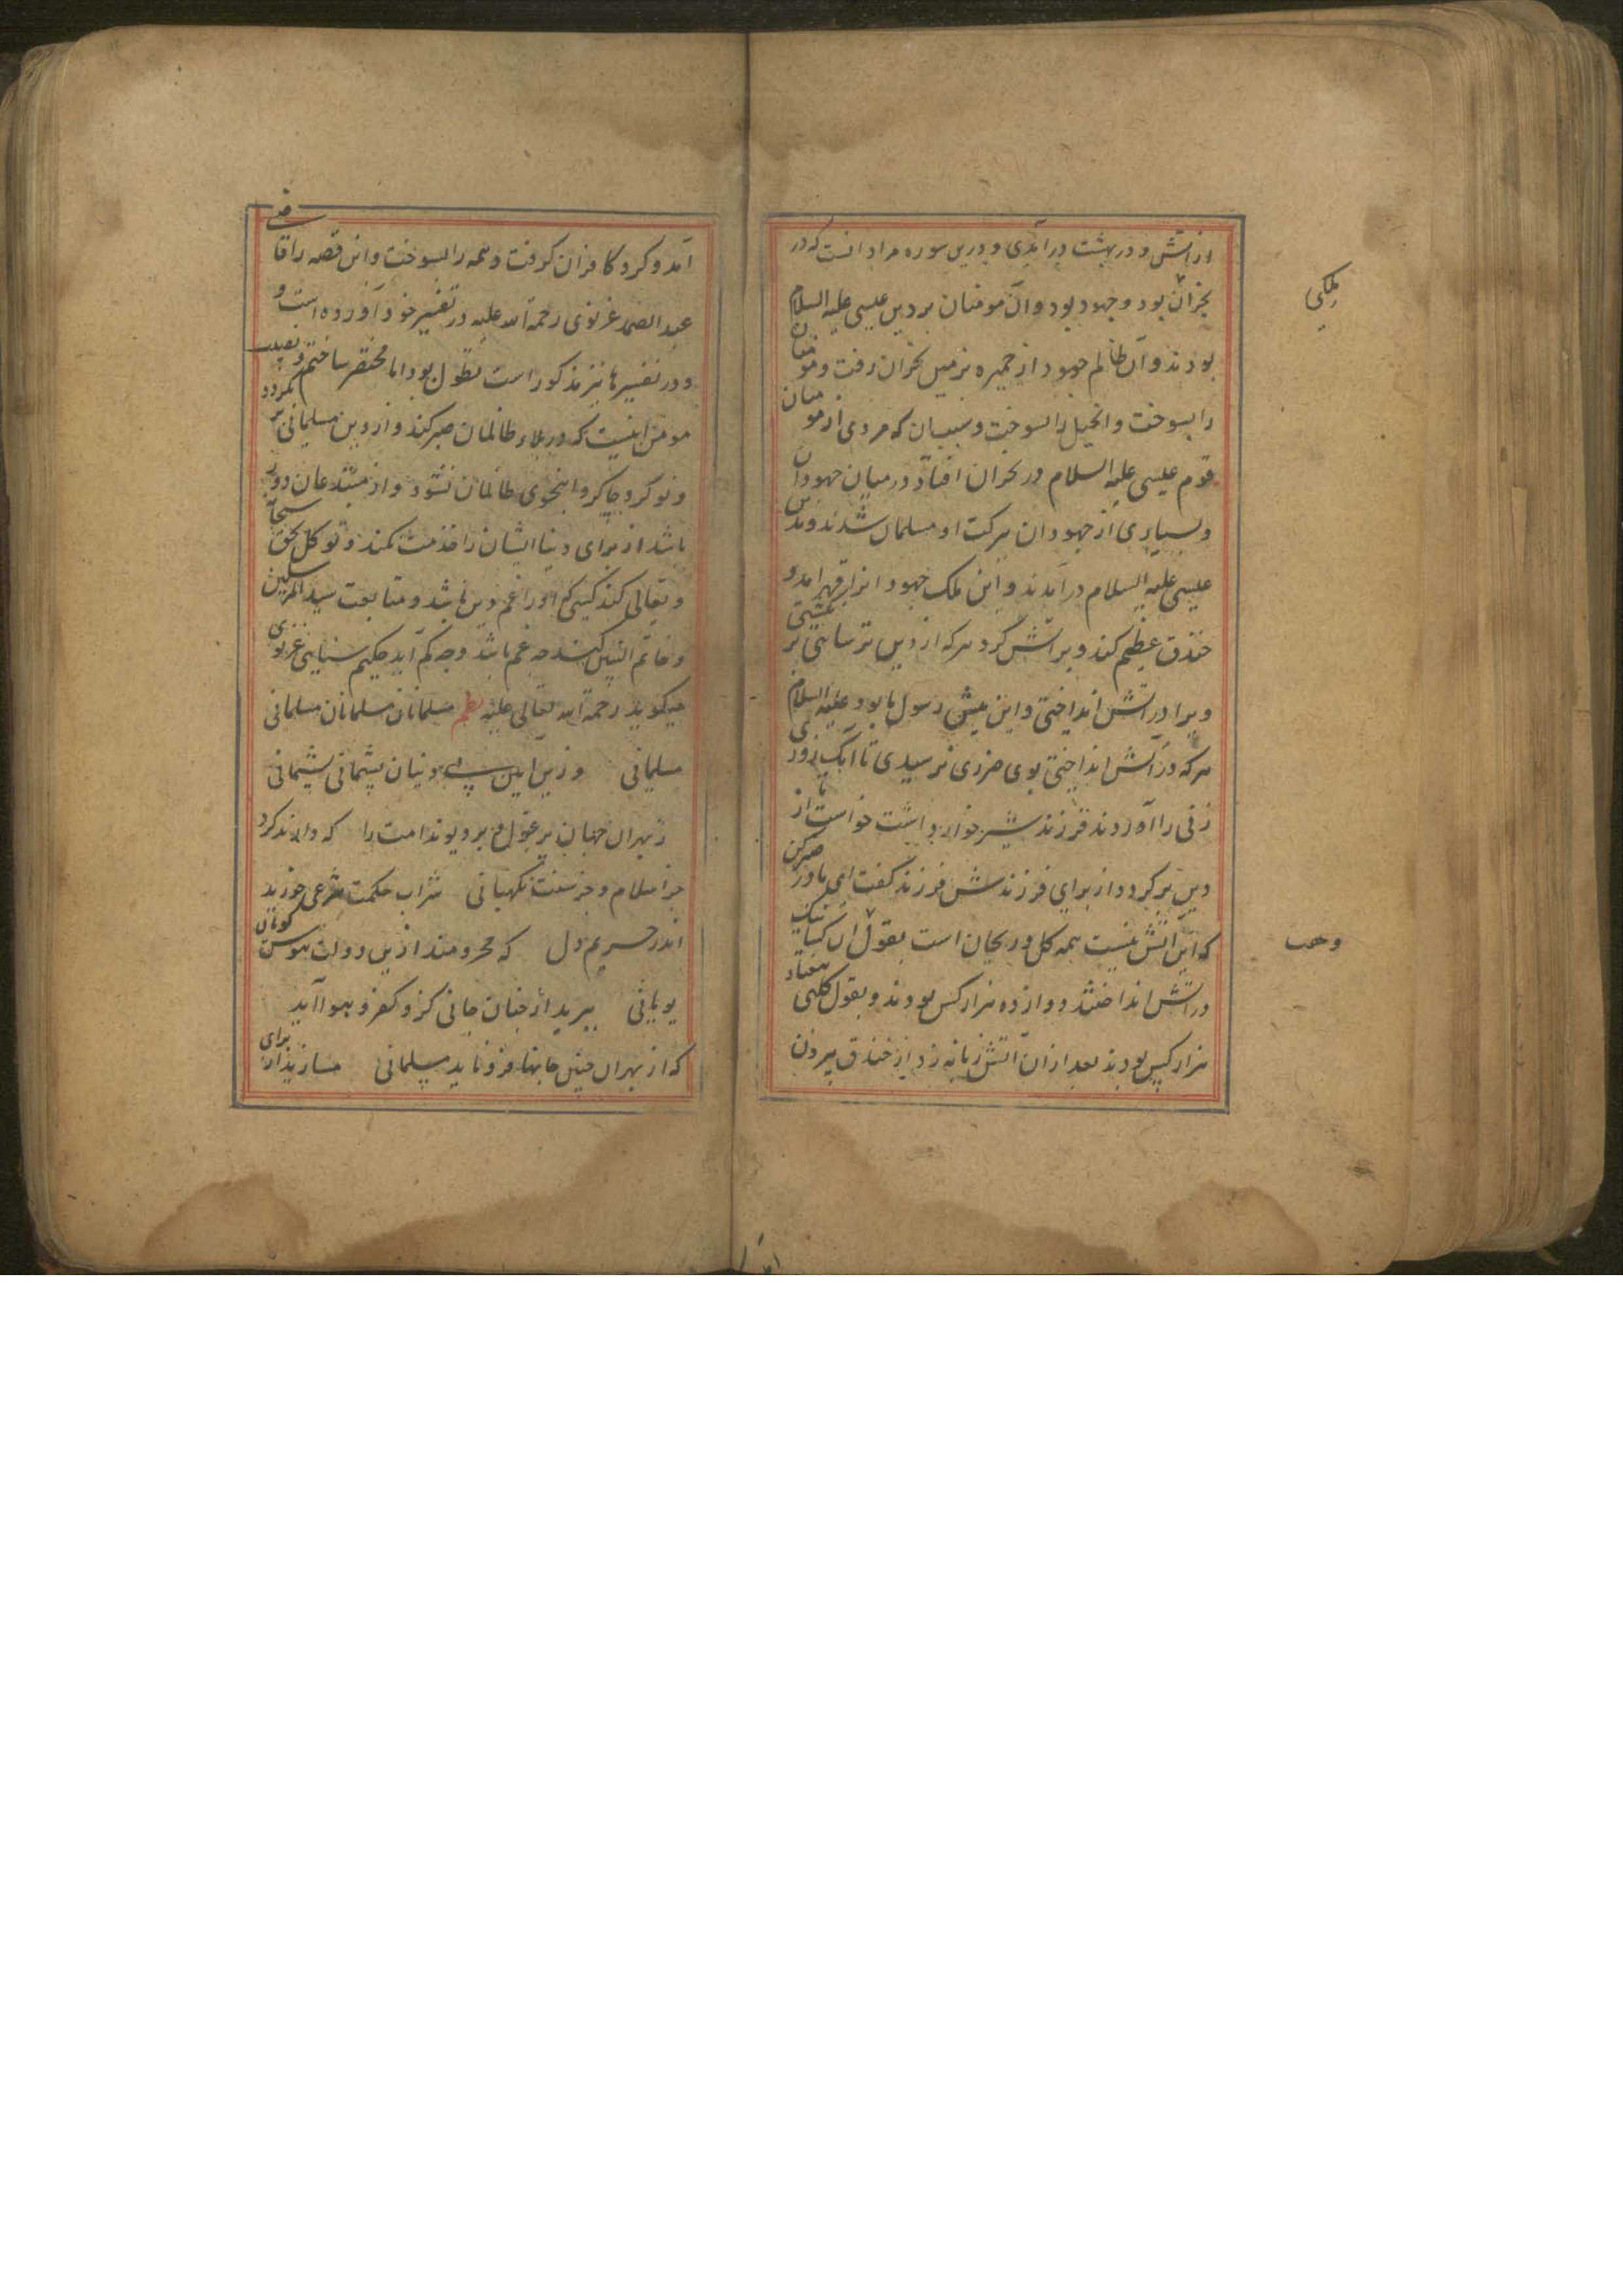 در آتش و در بهشت در آمدی و درین سوره مراد انست که در
نجران بود و جهود بود و آن مومنان بر دین عیسی علیه السلام
بودند و آن ظالم جهود از حمیره بزمین نجران رفت و مومنان
را بسوخت و انجیل را بسوخت و سبب ان که مردی از مومنان
قوم عیسی علیه السلام در نجران افتاد در میان جهودان
و بسیاری از جهودان ببرکت او مسلمان شدند و بدین
عیسی علیه السلام در آمدند و این ملک جهود انرا بقهر امد و
خندق عظیم کند و پر آتش کرد هر که از دین ترسایی بر نگشتی
ویرا در آتش انداختی و این پیش رسول ما بود علیه السلام
هر که در آتش انداختی بوی ضرری نرسیدی تا آنک روزی
زنی را آوردند فرزند شیر خواره داشت خواست تا از
دین بر کردد از برای فرزندش فرزند کفت ای مادر صبر کن
که این اتش نیست همه کل و ریحان است بقول آن کسانیک
در آتش انداختند دوازده هزار کس بودند و بقول کلبی هفتاد
هزار کس بودند بعد از ان آتش زبانه زد از خندق بیرون
ملکی
وهب
آمد و کرد کافران کرفت و همه را بسوخت و این قصه را قاضی
عبد الصمد غزنوی رحمة الله علیه در تفسیر خود آورده است و
و در تفسیرها نیز مذکور است مطول بود اما مختصر ساختم
مومن اینست که در بلاء ظالمان صبر کند و از دین مسلمانی بر نکردد
و نوکر و چاکر و اینجوی ظالمان نشود و از مبتدعان دور
باشد از برای دنیا ایشان را خدمت نکند و توکل بحق سبحانه
و تعالی کند کسی که او را غم دین باشد و متابعت سید المرسلین
و خاتم النبیین کند چه غم باشد و چه کم آید حکیم سنایی غزنوی
میکوید رحمة الله تعالی علیه نظم مسلمانان مسلمانان مسلمانی
مسلمانی    وزین آیین بی دینان پشیمانی پشیمانی
که داند کرد
جز اسلام و جز سنت نکهبانی    شراب حکمت شرعی خورید
اندر حریم دل    که محرومند ازین دولت هوس کویان
یونانی    ببرید از چنان جانی کزو کفر و هوا آید
که از بهران چنین جانها فرو ناید مسلمانی    مسازید از برای